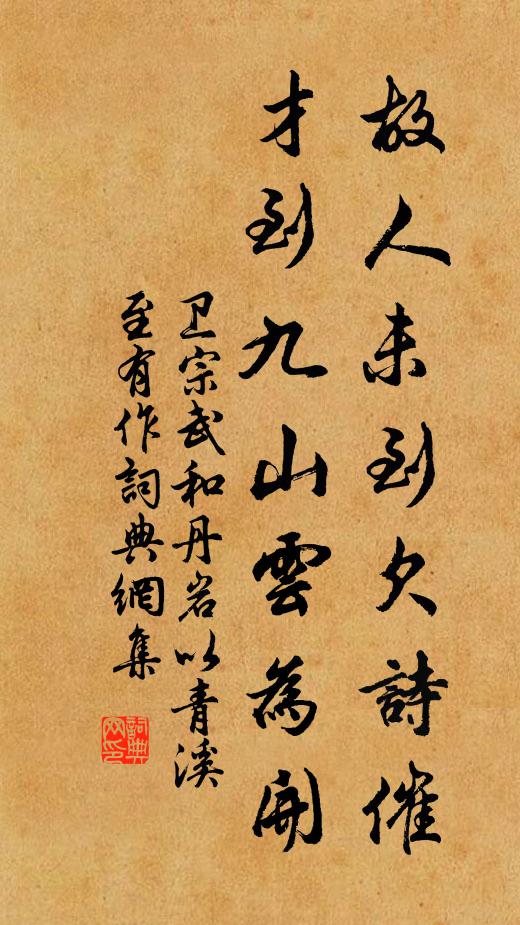 故人未到欠詩催
才到九山雲為開
卫宗武和丹岩以青溪
至有作詞典網集
詞典網印